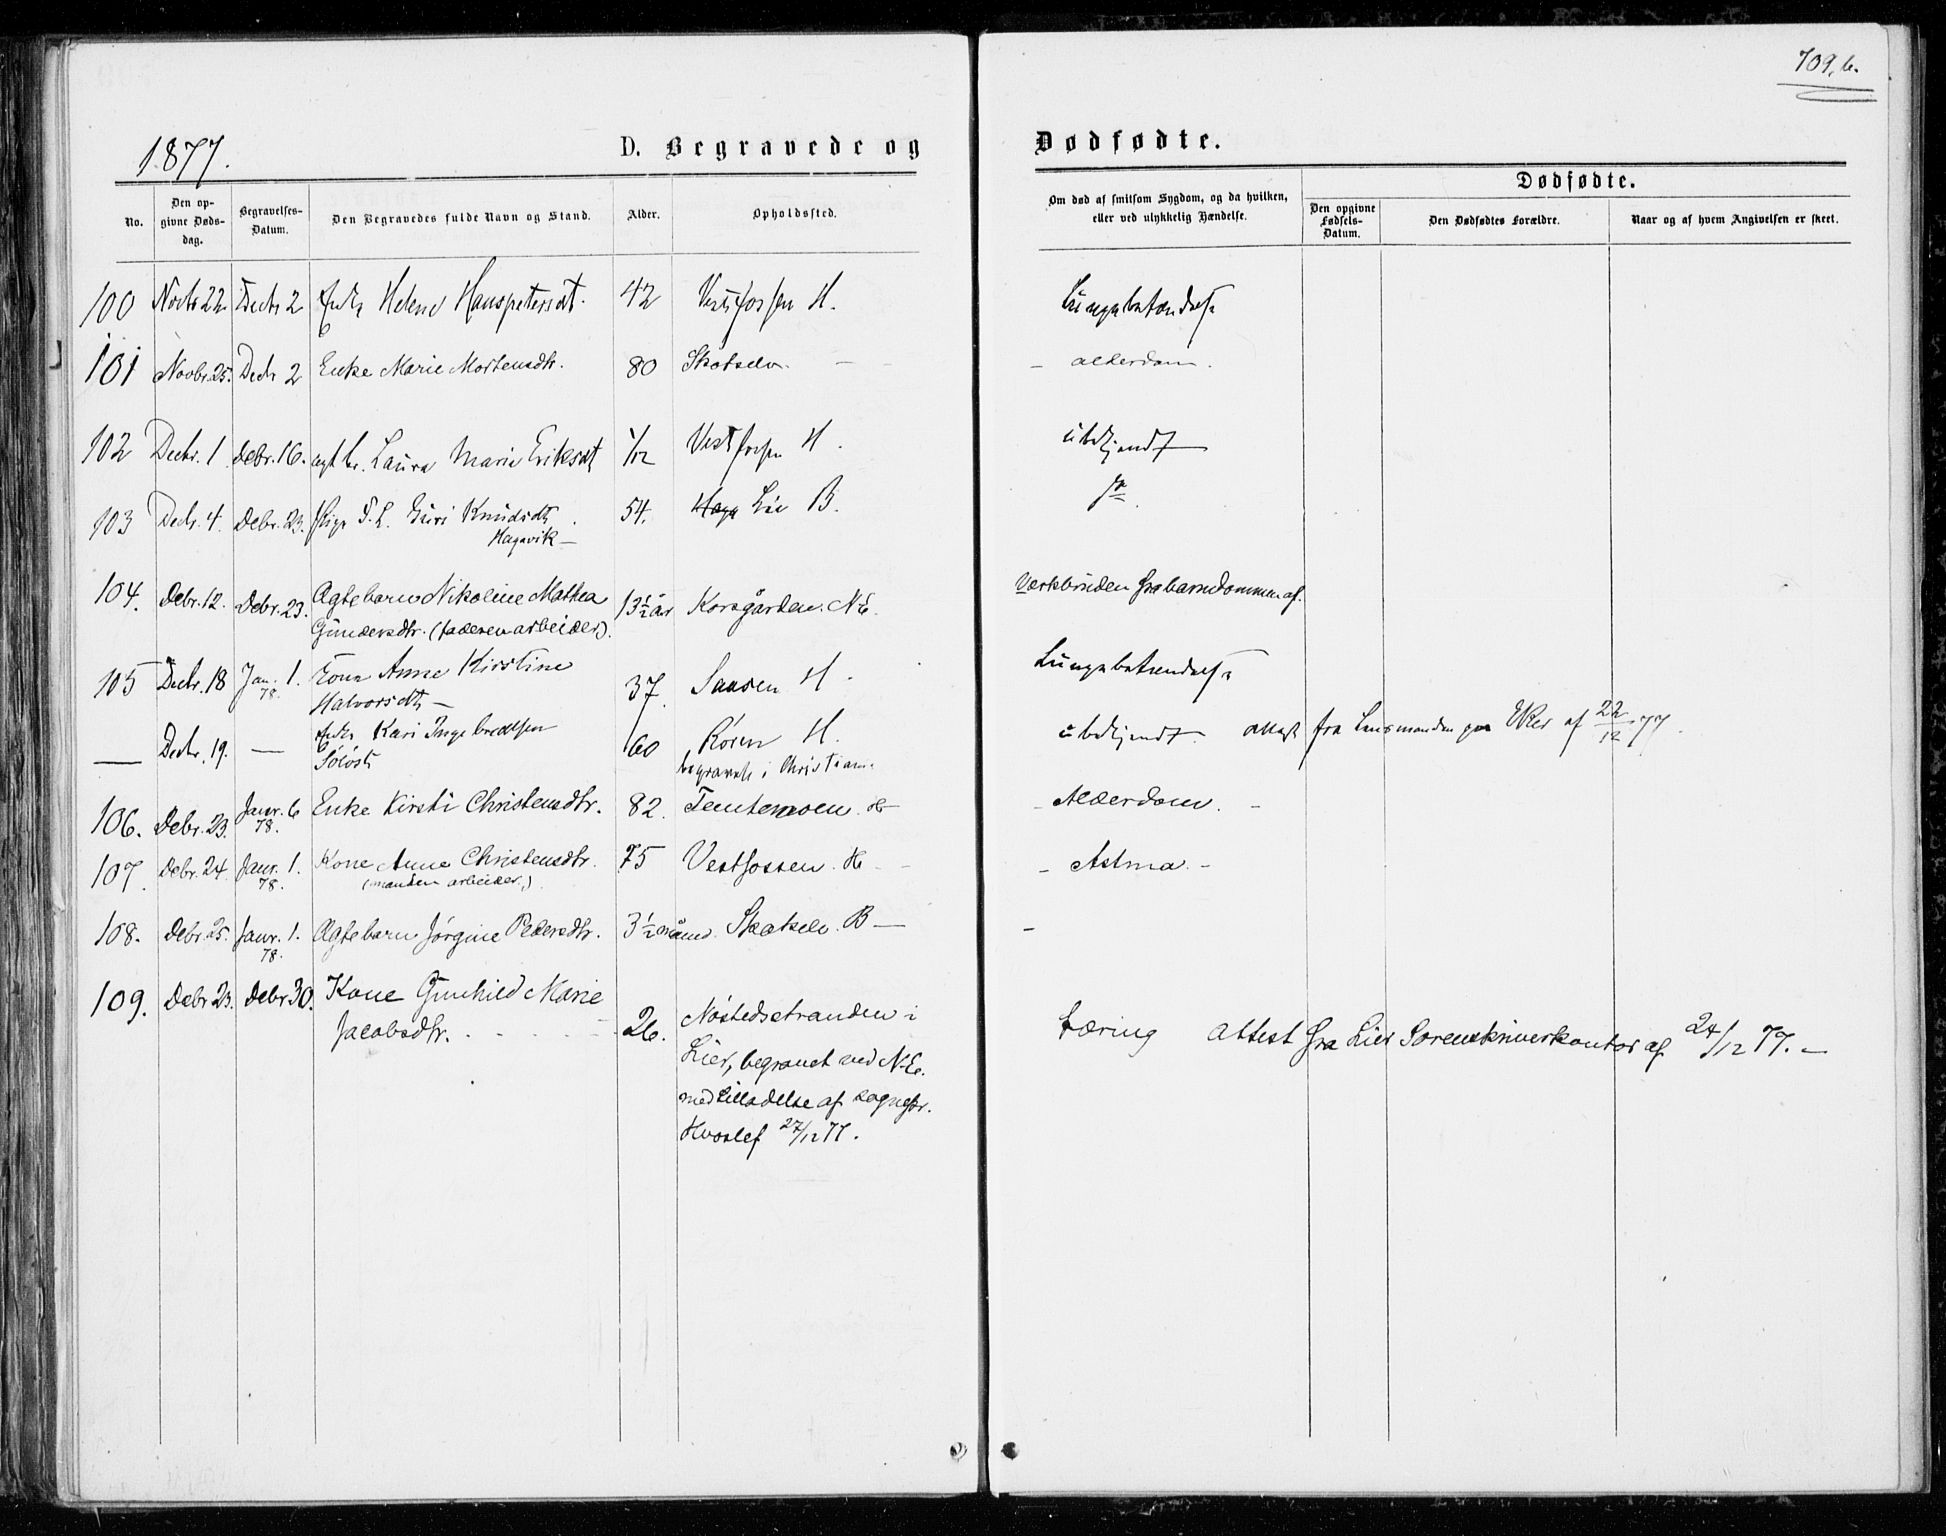 709,b.
1877. D. Begravede og Dødfødte.
No.
Den opgivne Dødsdag.
Begravelses-Datum.
Den Begravedes fulde Navn og Stand.
Alder.
Opholdssted.
Om død af smitsom Sygdom, og da hvilken, eller ved ulykkelig Hændelse.
Dødfødte.
Den opgivne Fødsels-Datum.
Den Dødfødtes Forældre.
Naar og af hvem Angivelsen er skeet.
100 Novbr 22 Decbr 2 Enke Helene Hanspetersdt. 42 Vestfossen H. Lungebetændelse
101 Novbr. 25. Decbr 2 Enke Marie Mortensdtr. 80 Skotselv. — – alderdom.
102 Decbr. 1 Debr. 16. ægt b. Laura Marie Eriksdt 1/12 Vestfossen H. ubekjendt
103 Decbr. 4. Debr. 23. Pige Guri Knudsdt. 54. Lie B.
Hagavik —
104. Debr. 12. Debr. 23. Ægtebarn Nikoline Mathea 13½ år Korsgården. N.E. Værkbruden fra barndommen af.
Gundersdtr. (faderen arbeider).
105 Decbr. 18 Jan. 1. 78. Kone Anne Kirstine 37. Saasen H. Lungebetændelse
Halvorsdt —
— Decbr. 19. — Enke Kari Ingebredtsen 60 Røren H. ubekjendt. attest fra Lensmanden paa Eker af 22/12 77.
begravet i Christian.
106. Debr. 23. Janr. 6 78. Enke Kirsti Christensdtr. 82. Temtemoen. H – Alderdom. –
107. Debr. 24. Janr. 1. 78. Kone Anne Christensdtr. 75 Vestfossen. H – – Astma. –
(manden arbeider.)
108. Debr. 25. Janr. 1. 78. Ægtebarn Jørgine Pedersdtr. 3½ måned. Skotselv. B — –
109. Debr. 23. Debr 30. Kone Gunhild Marie
Jacobsdtr. 26. Nøstedstranden i Tæring attest fra Lier Sorenskriverkontor af 24/12 77. –
Lier, begravet ved N.E.
med tilladelse af sognepr.
Hvoslef 27/12 77.